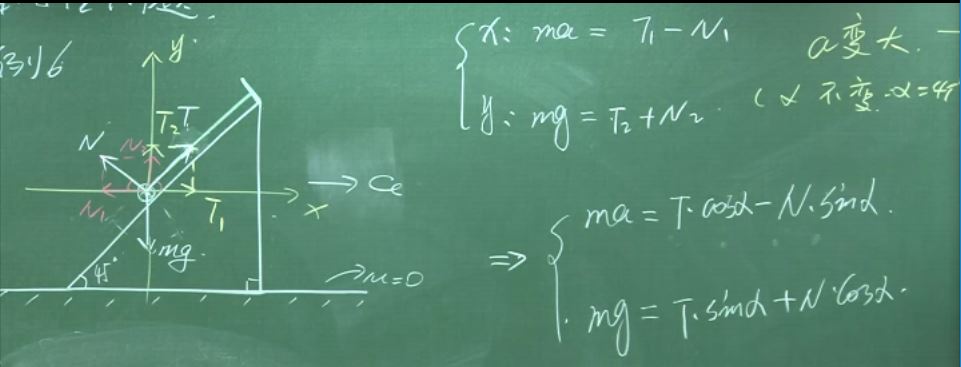 例6
y
N
N₂
T₂
T
N₁
T₁
x
→ a
mg
45°
μ=0
x: ma = T₁ - N₁
y: mg = T₂ + N₂
a变大.
(α 不变.α=45
⇒ ma = T·cosα - N·sinα.
mg = T·sinα + N·cosα.